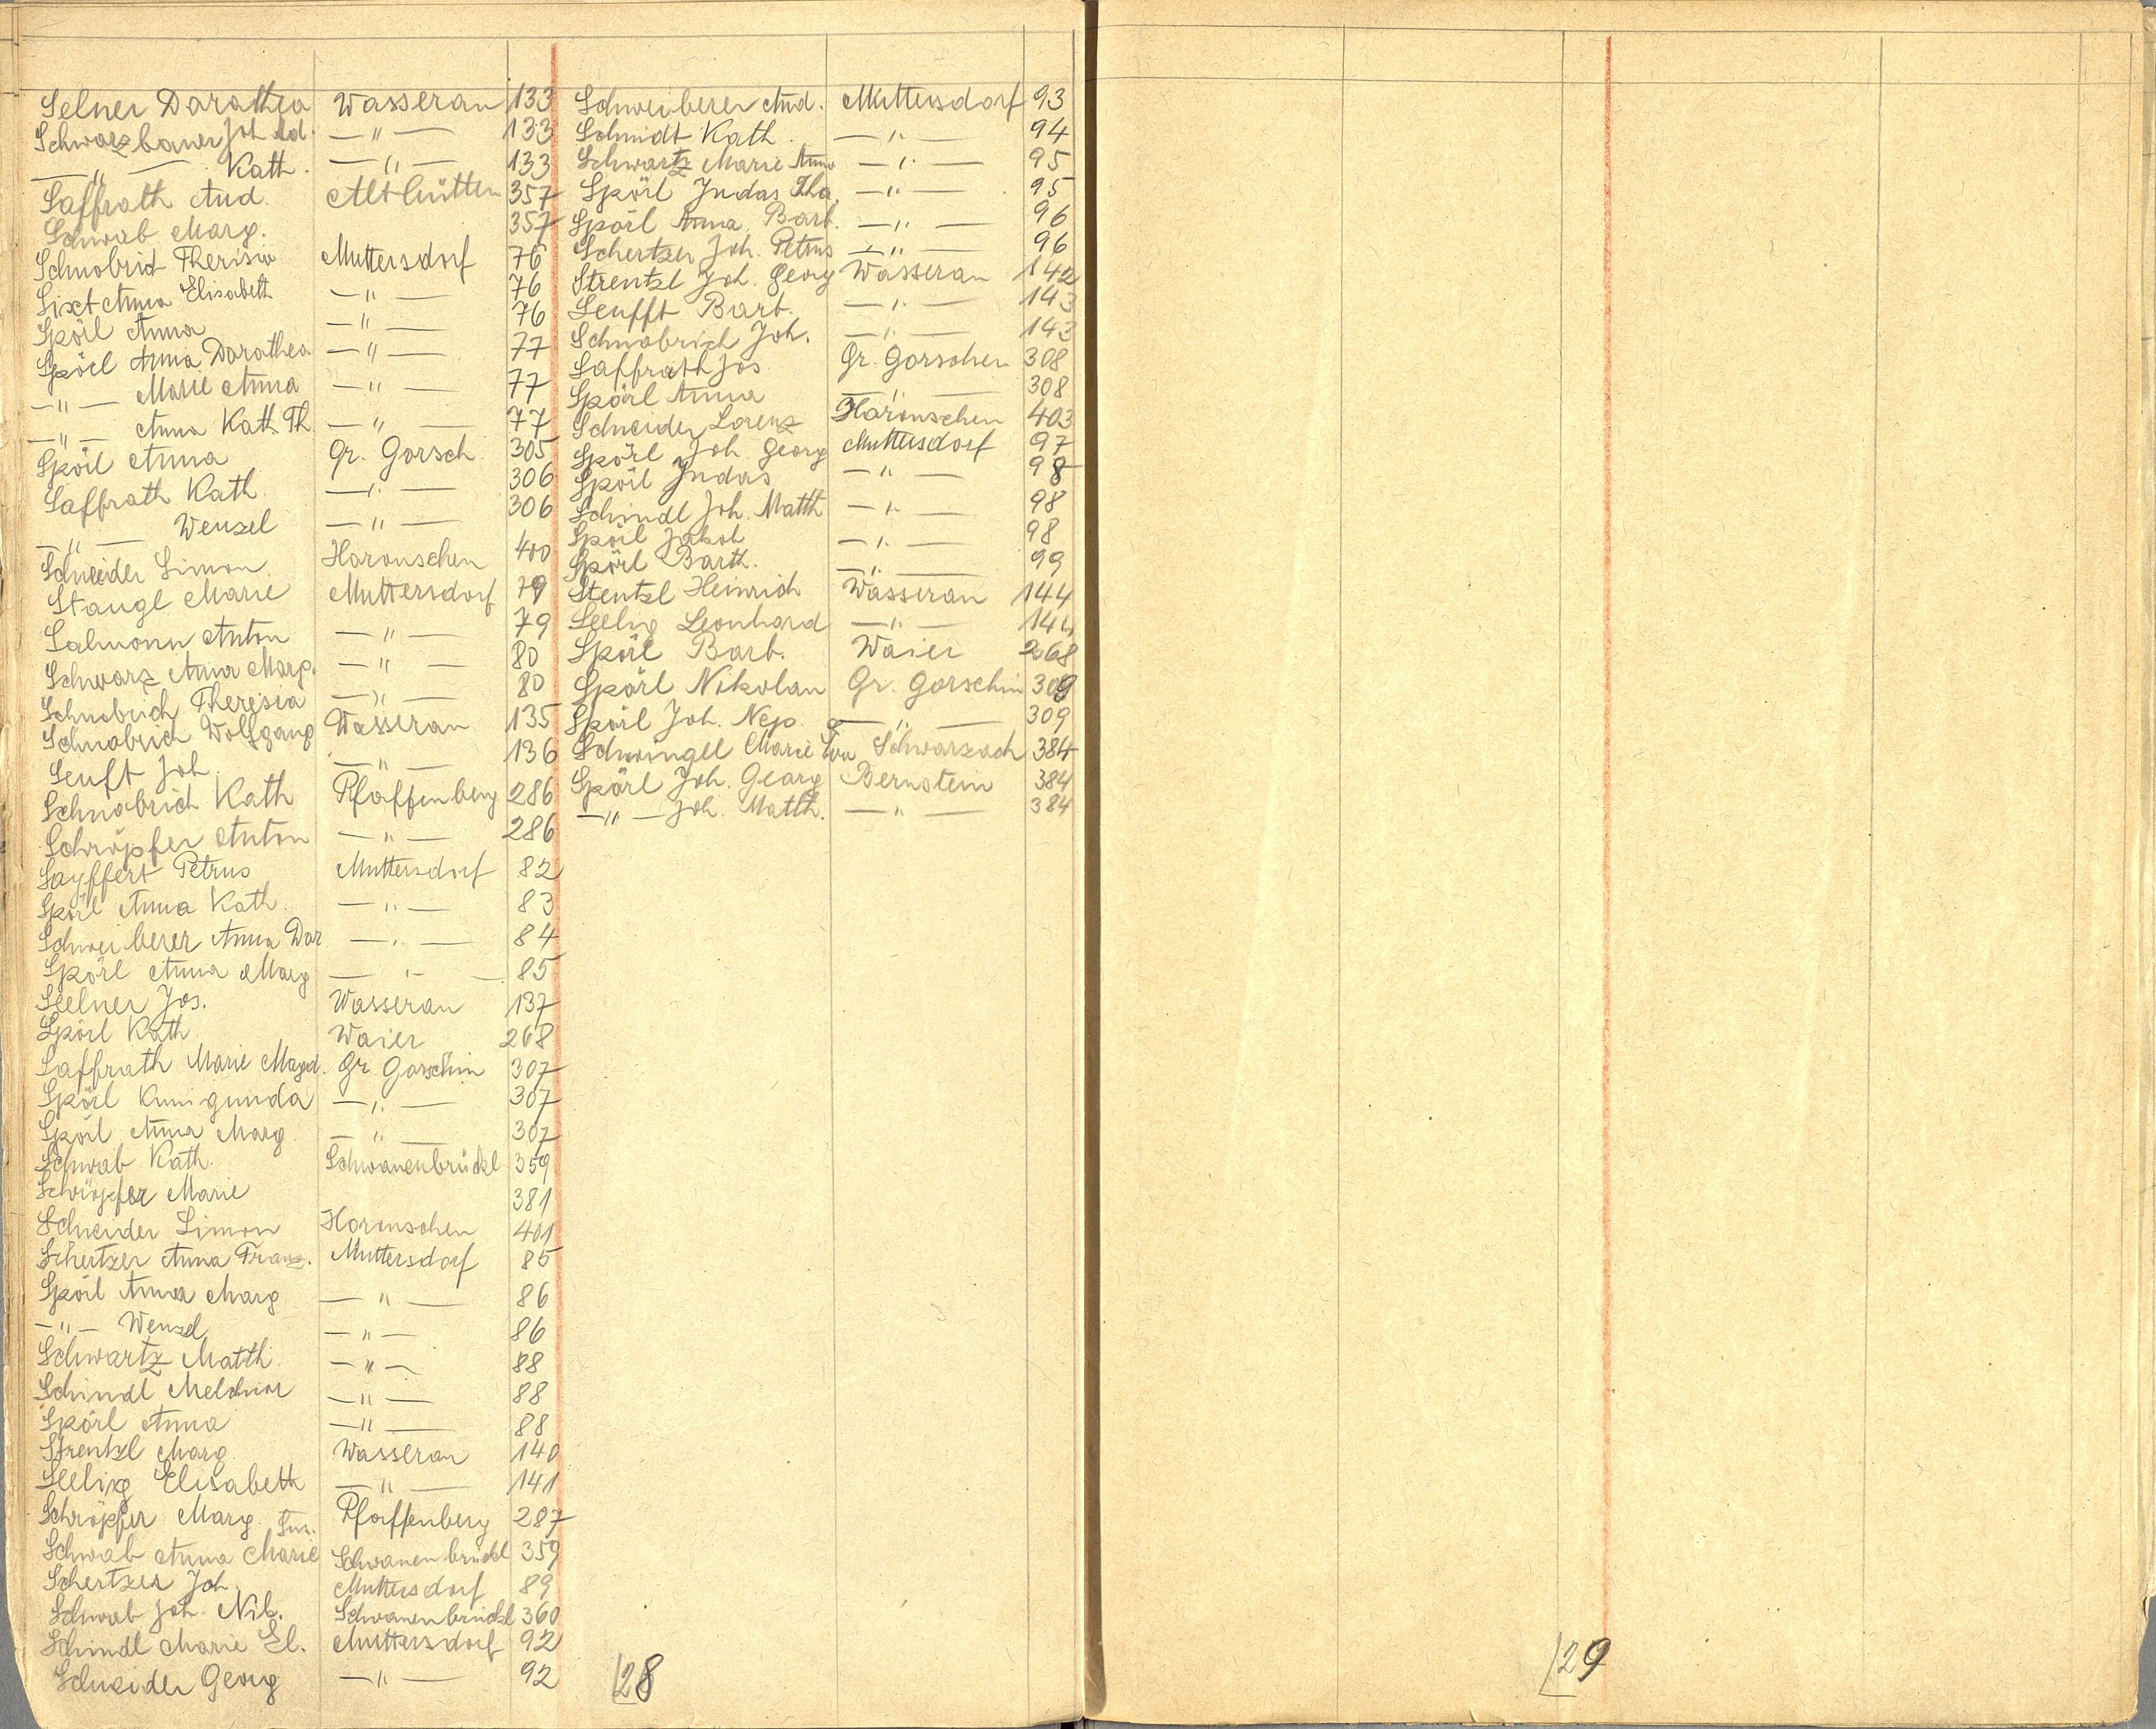 Selner Darathea Wasserau 133
Schwarzbauer Joh Ad. — " — 133
— " — Kath. — " — 133
Saffrath And. Althütten 357
Schwab Marg. 357
Schnobrich Therisia Muttersdorf 76
Sixt Anna Elisabeth — " — 76
Spörl Anna — " — 76
Spörl Anna Darathea — " — 77
— " — Marie Anna — " — 77
— " — Anna Kath. Th. — " — 77
Spörl Anna Gr. Gorsch. 305
Saffrath Kath — " — 306
— " — Wenzel — " — 306
Schneider Simon Horouschen 400
Stangl Marie Muttersdorf 79
Salmonn Anton — " — 79
Schwarz Anna Marg. — " — 80
Schnobrich Theresia — " — 80
Schnobrich Wolfgang Wasserau 135
Senft Joh — " — 136
Schnobrich Kath Pfaffenberg 286
Schröpfer Anton — " — 286
Sayffert Petrus Muttersdorf 82
Spörl Anna Kath. — " — 83
Schreiberer Anna Dor — " — 84
Spörl Anna Marg — " — 85
Seelner Jos. Wasserau 137
Spörl Kath Waier 268
Saffrath Marie Magd. Gr. Gorschin 307
Spörl Kunigunda — " — 307
Spörl Anna Marg — " — 307
Schwab Kath. Schwanenbrückl 359
Schröpfer Marie 381
Schneider Simon Horouschen 401
Schertzer Anna Franz. Muttersdorf 85
Spörl Anna Marg — " — 86
— " — Wenzel — " — 86
Schwartz Matth. — " — 88
Schindl Melchior — " — 88
Spörl Anna — " — 88
Strentzl Marg Wasserau 140
Seelig Elisabeth — " — 141
Schröpfer Marg. Sus. Pfaffenberg 287
Schwab Anna Marie Schwanenbrückl 359
Schertzer Joh. Muttersdorf 89
Schwab Joh. Nik. Schwanenbrückl 360
Schindl Marie El. Muttersdorf 92
Schneider Georg — " — 92
Schreiberer And. Muttersdorf 93
Schmidt Kath. — " — 94
Schwartz Marie Anna — " — 95
Spörl Judas Tha. — " — 95
Spörl Anna Barb. — " — 96
Schertzer Joh. Petrus — " — 96
Strentzl Joh. Georg Wasserau 142
Seufft Barb. — " — 143
Schnobrich Joh. — " — 143
Saffrath Jos Gr. Gorschen 308
Spörl Anna — " — 308
Schneider Lorenz Horouschen 403
Spörl Joh. Georg Muttersdorf 97
Spörl Judas — " — 98
Schindl Joh. Matth — " — 98
Spörl Jakob — " — 98
Spörl Barth. — " — 99
Stentzl Heinrich Wasserau 144
Seelig Leonhard — " — 144
Spörl Barb. Waier 268
Spörl Nikolau Gr. Gorschin 309
Spörl Joh. Nep. — " — 309
Schwingel Marie Eva Schwarzach 384
Spörl Joh. Georg Bernstein 384
— " — Joh. Matth. — " — 384
28
29